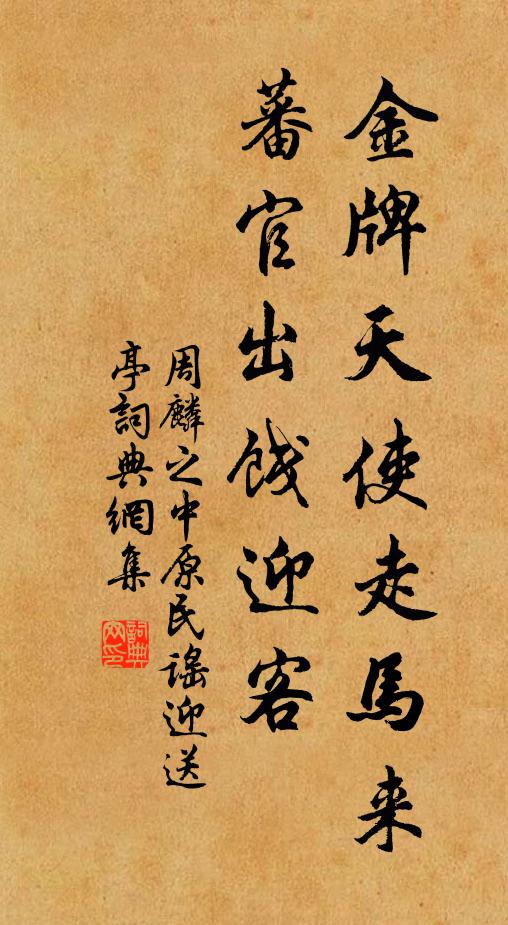 金牌天使走馬来
蕃官出餞迎客
周麟之中原民謠迎送
亭詞典網集
詞典
网印